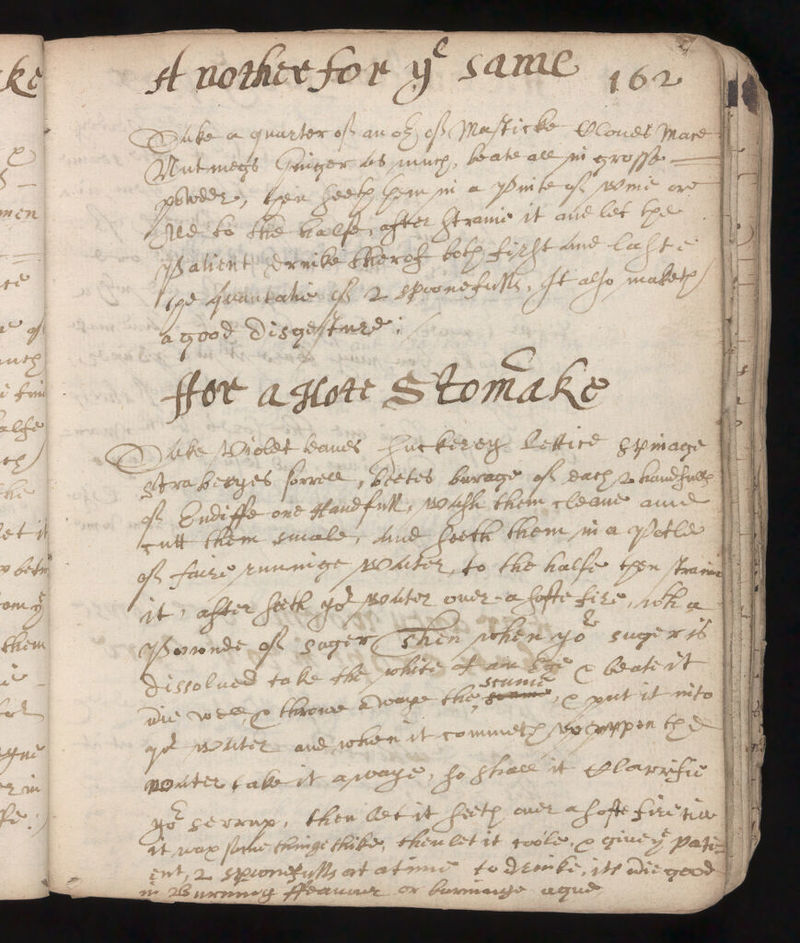 Another for yᵉ same 162
Take a quarter of an oz of Masticke Cloues Mace
Nutmegs Ginger as much, beate all in grosse
powder, then seeth them in a Pinte of wine or
Ale to the halfe, after straine it and let the
Patient drinke therof both first and laste
the quantatie of 2 spoonefulls, It also maketh
a good disgesture:
ffor a Hote Stomake
Take Violet leaues Suckerey Lettice Spinage
Straberyes sorrell, beetes borage of each 2 handfulls
of Endiffe one Handfull, wash them cleane and
cutt them smale, and seeth them in a Potle
of faire runnige water, to the halfe then straine
it, after seeth yoʳ water ouer a softe fire, with a
Pounde of suger Then when yoʳ suger is
dissolued take the white of an Ege & beate it
well, & throwe awaye the scume, & put it into
yoʳ water and when it commeth vp vppon the
water take it awaye, so shall it Clarrifie
yoʳ serrup, then let it seeth ouer a softe fire till
it wax some thinge thike, then let it coole, & giue yᵉ Pati=
ent, 2 spoonefulls at a time to drinke, its good
in Burning ffeauour or burninge ague
ke
men
them